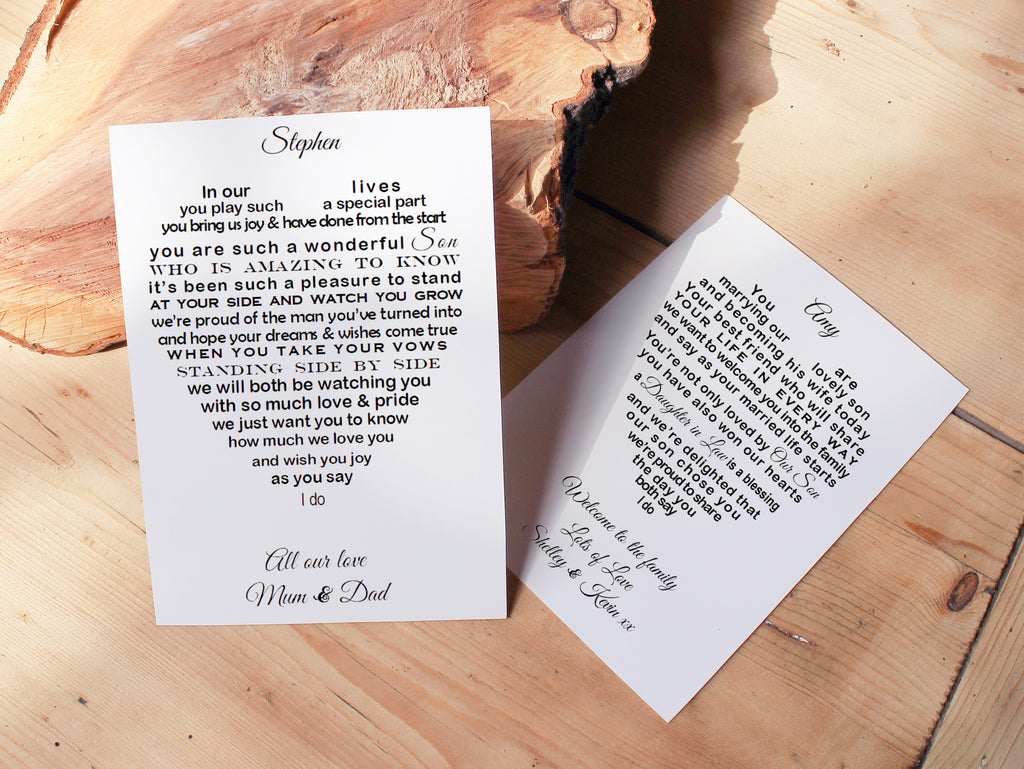 Stephen
In our lives
you play such a special part
you bring us joy & have done from the start
you are such a wonderful Son
WHO IS AMAZING TO KNOW
it's been such a pleasure to stand
AT YOUR SIDE AND WATCH YOU GROW
we're proud of the man you've turned into
and hope your dreams & wishes come true
WHEN YOU TAKE YOUR VOWS
STANDING SIDE BY SIDE
we will both be watching you
with so much love & pride
we just want you to know
how much we love you
and wish you joy
as you say
I do
All our love
Mum & Dad
Amy
You are
marrying our lovely son
and becoming his wife today
Your best friend who will share
YOUR LIFE IN EVERY WAY
we want to welcome you into the family
and say as your married life starts
You're not only loved by Our Son
you have also won our hearts
a Daughter in Law is a blessing
and we're delighted that
our son chose you
we're proud to share
the day you
both say
I do
Welcome to the family
Lots of Love
Shelley & Kevin xx